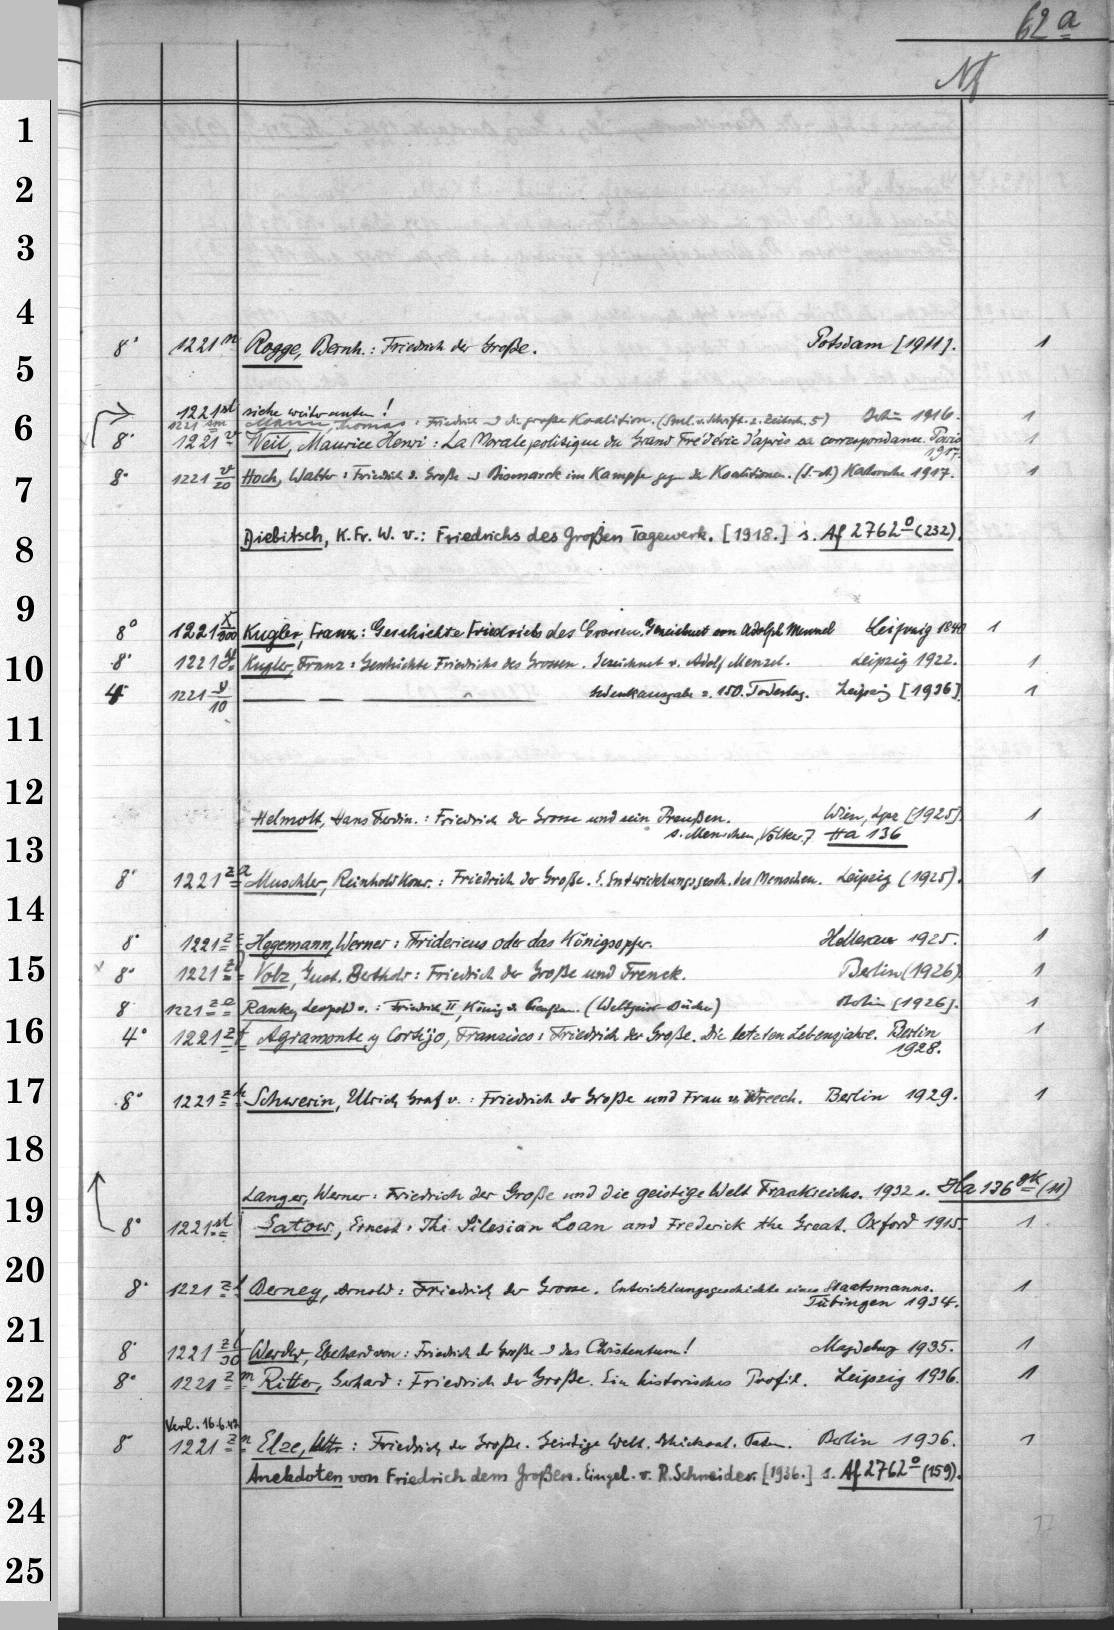 62 a
Nf
1
2
3
4
8° 1221 n Rogge, Bernh.: Friedrich der Große. Potsdam [1911]. 1
5
1221 st siehe weiter unten!
6
1221 sm Mann, Thomas: Friedrich u die große Koalition. (Sml. v. Schrift. z. Zeitsch. 5) Berlin 1916. 1
8° 1221 v Weil, Maurice Henri: La Morale politique du Grand Frédéric d'après sa correspondance. Paris 1917. 1
7
8° 1221 v/20 Hoch, Walter: Friedrich d. Große u Bismarck im Kampfe gegen die Koalitionen. (S.-A.) Karlsruhe 1917. 1
8
Diebitsch, K. Fr. W. v.: Friedrichs des Großen Tagewerk. [1918.] s. Af 2762° (232).
9
8° 1221 x/300 Kugler, Franz: Geschichte Friedrichs des Grossen. Gezeichnet von Adolph Menzel Leipzig 1840 1
10
8° 1221 y Kugler, Franz: Geschichte Friedrichs des Grossen. Gezeichnet v. Adolf Menzel. Leipzig 1922. 1
4° 1221 y/10 — — " — Gedenkausgabe z. 150. Todestag. Leipzig [1936] 1
11
12
Helmolt, Hans Ferdin.: Friedrich der Grosse und sein Preußen. Wien, Lpz [1925] 1
s. Menschen, Völker, Ha 136
13
8° 1221 za Muschler, Reinhold Konr.: Friedrich der Große. E. Entwicklungsgesch. des Menschen. Leipzig (1925). 1
14
8° 1221 zc Hegemann, Werner: Fridericus oder das Königsopfer. Hellerau 1925. 1
15
8° 1221 zd Volz, Gust. Berthold: Friedrich der Große und Trenck. Berlin (1926) 1
8 1221 ze Ranke, Leopold v.: Friedrich II, König v. Preußen. (Weltgeist-Bücher) Berlin [1926]. 1
16
4° 1221 zf Agramonte y Cortijo, Francisco: Friedrich der Große. Die letzten Lebensjahre. Berlin 1928. 1
17
8° 1221 zh Schwerin, Ulrich Graf v.: Friedrich der Große und Frau v. Wreech. Berlin 1929. 1
18
Langer, Werner: Friedrich der Große und die geistige Welt Frankreichs. 1932 s. Ha 136 gk (11)
19
8° 1221 st Satow, Ernest: The Silesian Loan and Frederick the Great. Oxford 1915. 1
20
8° 1221 zk Berney, Arnold: Friedrich der Grosse. Entwicklungsgeschichte eines Staatsmanns. Tübingen 1934. 1
21
8° 1221 zl/30 Werder, Eberhard von: Friedrich der Große u das Christentum! Magdeburg 1935. 1
22
8° 1221 zm Ritter, Gerhard: Friedrich der Große. Ein historisches Profil. Leipzig 1936. 1
Verl. 16.6.42
23
8° 1221 zn Elze, Walter: Friedrich der Große. Geistige Welt. Schicksal. Taten. Berlin 1936. 1
Anekdoten von Friedrich dem Großen. Eingel. v. R. Schneider. [1936.] s. Af 2762° (159).
24
17
25